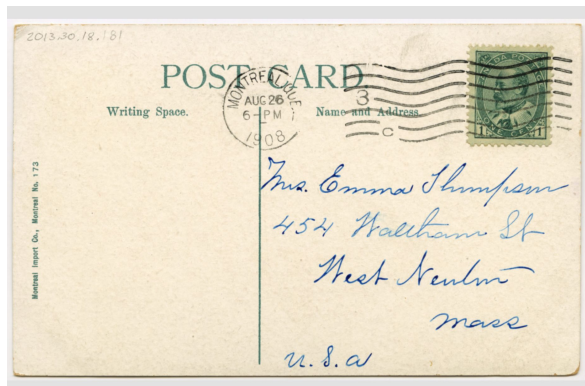 2013.30.18.181
POST CARD
MONTREAL, QUE.
AUG 26
6-PM
1908
3
C
CANADA POSTAGE
1 ONE CENT 1
Writing Space.
Name and Address.
Montreal Import Co., Montreal No. 173
Mrs. Emma Thompson
454 Waltham St
West Newton
Mass
U.S.A